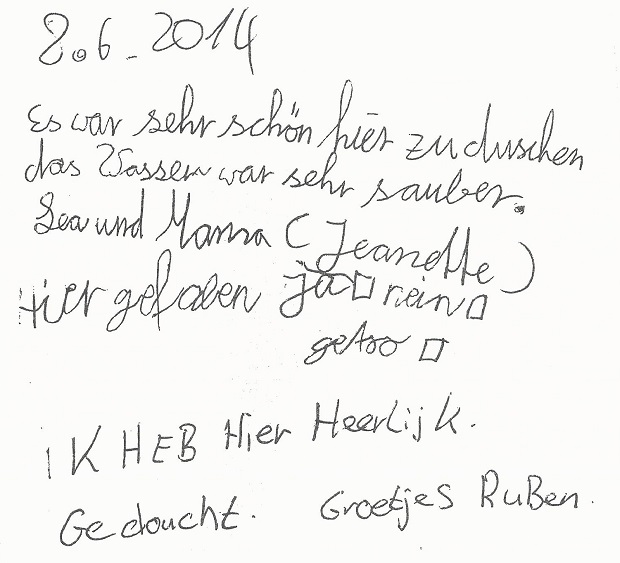 2.6.2014
Es war sehr schön hier zu duschen
das Wasser war sehr sauber.
Lea und Mama (Jeanette)
Hier gefalen ja □ nein □
□
iK HEB Hier Heerlijk.
Gedoucht. Groetjes RuBen.